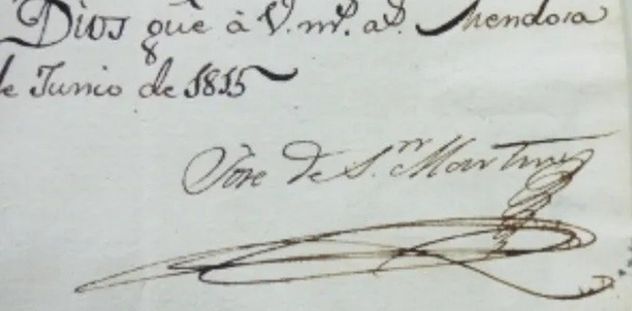 Dios gue à V. ms. as. Mendoza
8
de Junio de 1815
Jose de Sn. Martin